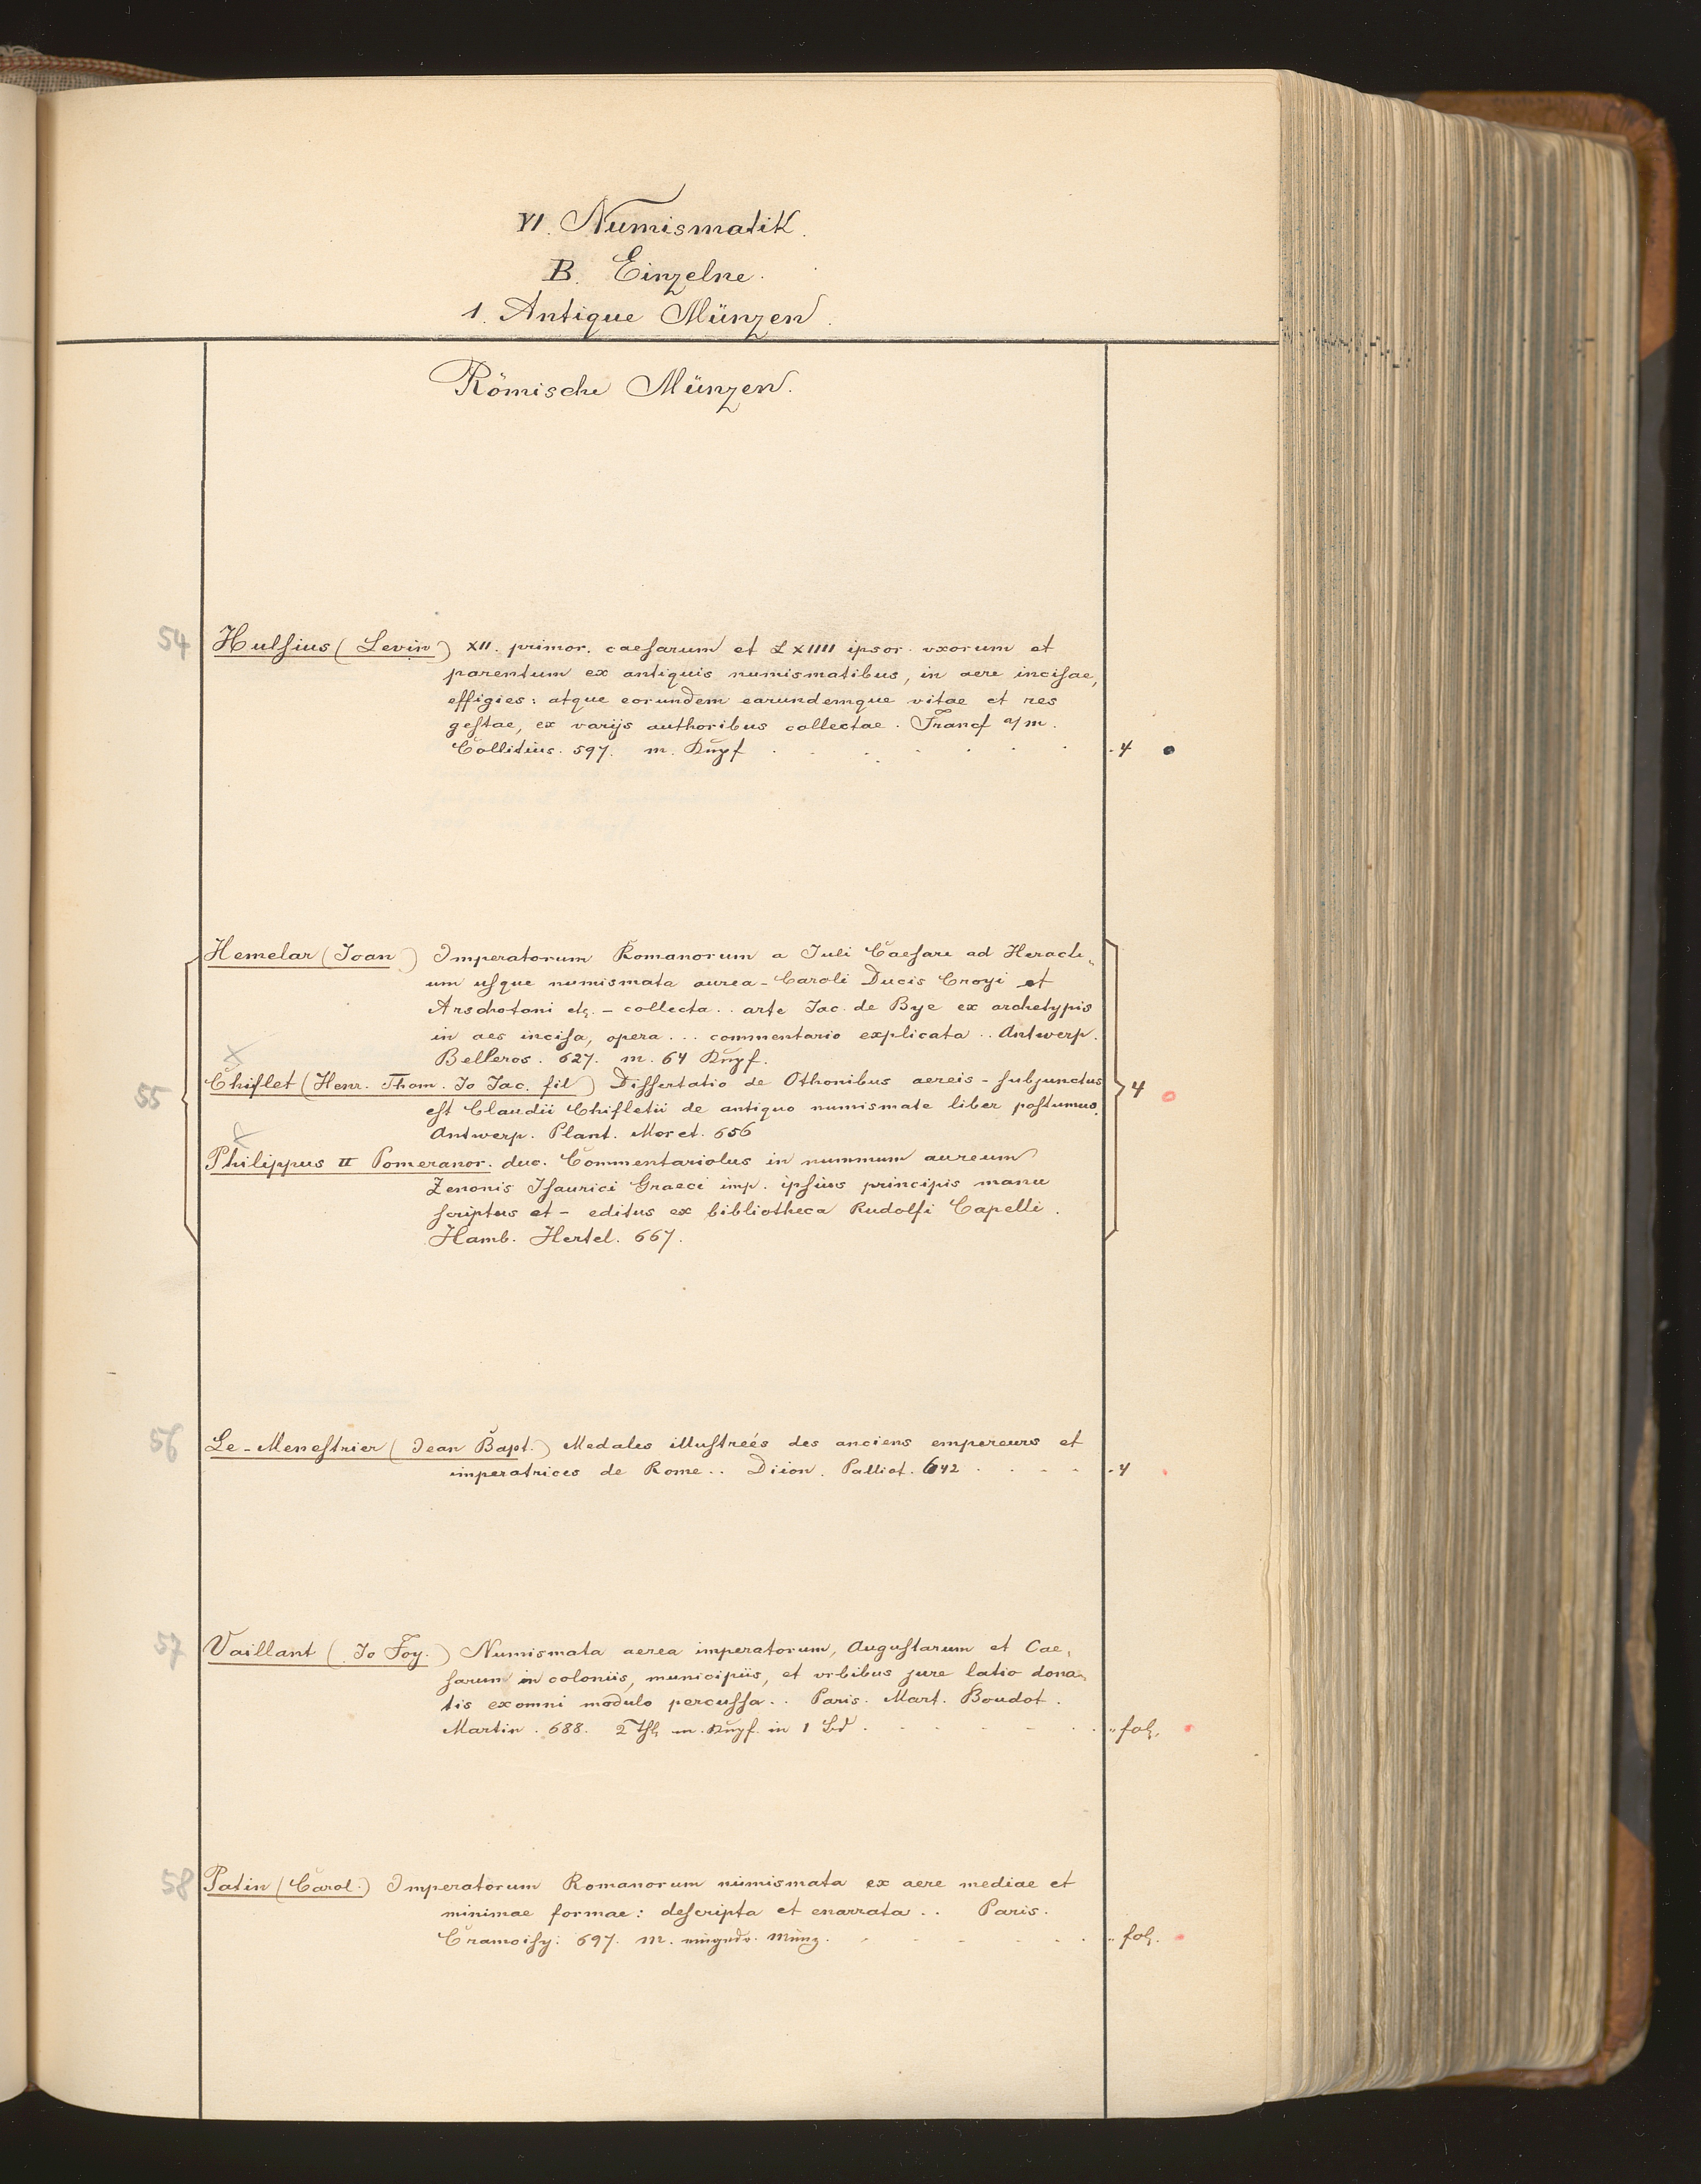 VI. Numismatik.
B. Einzelne.
1. Antique Münzen.
Römische Münzen.
54 Hulsius (Levin) XII. primor. caesarum et LXIIII ipsor. uxorum et
parentum ex antiquis numismatibus, in aere incisae,
effigies: atque eorundem earundemque vitae et res
gestae, ex varijs authoribus collectae. Francf a/m.
Collitius. 597. m. Kupf . . . . . . . 4
Hemelar (Joan.) Imperatorum Romanorum a Juli Caesare ad Heracli„
um usque numismata aurea - Caroli Ducis Croyi et
Arschotani etc. - collecta .. arte Jac. de Bye ex archetypis
in aes incisa, opera ... commentario explicata .. Antwerp.
Belleros. 627. m. 64 Kupf.
55 Chiflet (Henr. Thom. Jo Jac. fil) Dissertatio de Othonibus aereis - subjunctus 4
est Claudii Chifletii de antiquo numismate liber postumus.
Antwerp. Plant. Moret. 656
Philippus II Pomeranor. duc. Commentariolus in nummum aureum
Zenonis Isaurici Graeci imp. ipsius principis manu
scriptus et - editus ex bibliotheca Rudolfi Capelli.
Hamb. Hertel. 667.
56 Le-Menestrier (Jean Bapt.) Medales illustreés des anciens empereurs et
imperatrices de Rome .. Diion. Palliot. 642 . . . . . 4
57 Vaillant (Jo Foy.) Numismata aerea imperatorum, Augustarum et Cae„
sarum in coloniis, municipiis, et vrbibus jure latio dona„
tis ex omni modulo percussa .. Paris. Mart. Boudot.
Martin. 688. 2 Thl. m. Kupf. in 1 Bd . . . . . . fol.
58 Patin (Carol.) Imperatorum Romanorum numismata ex aere mediae et
minimae formae: descripta et enarrata .. Paris.
Cramoisy: 697. m. eingedr. Münz. . . . . . fol.